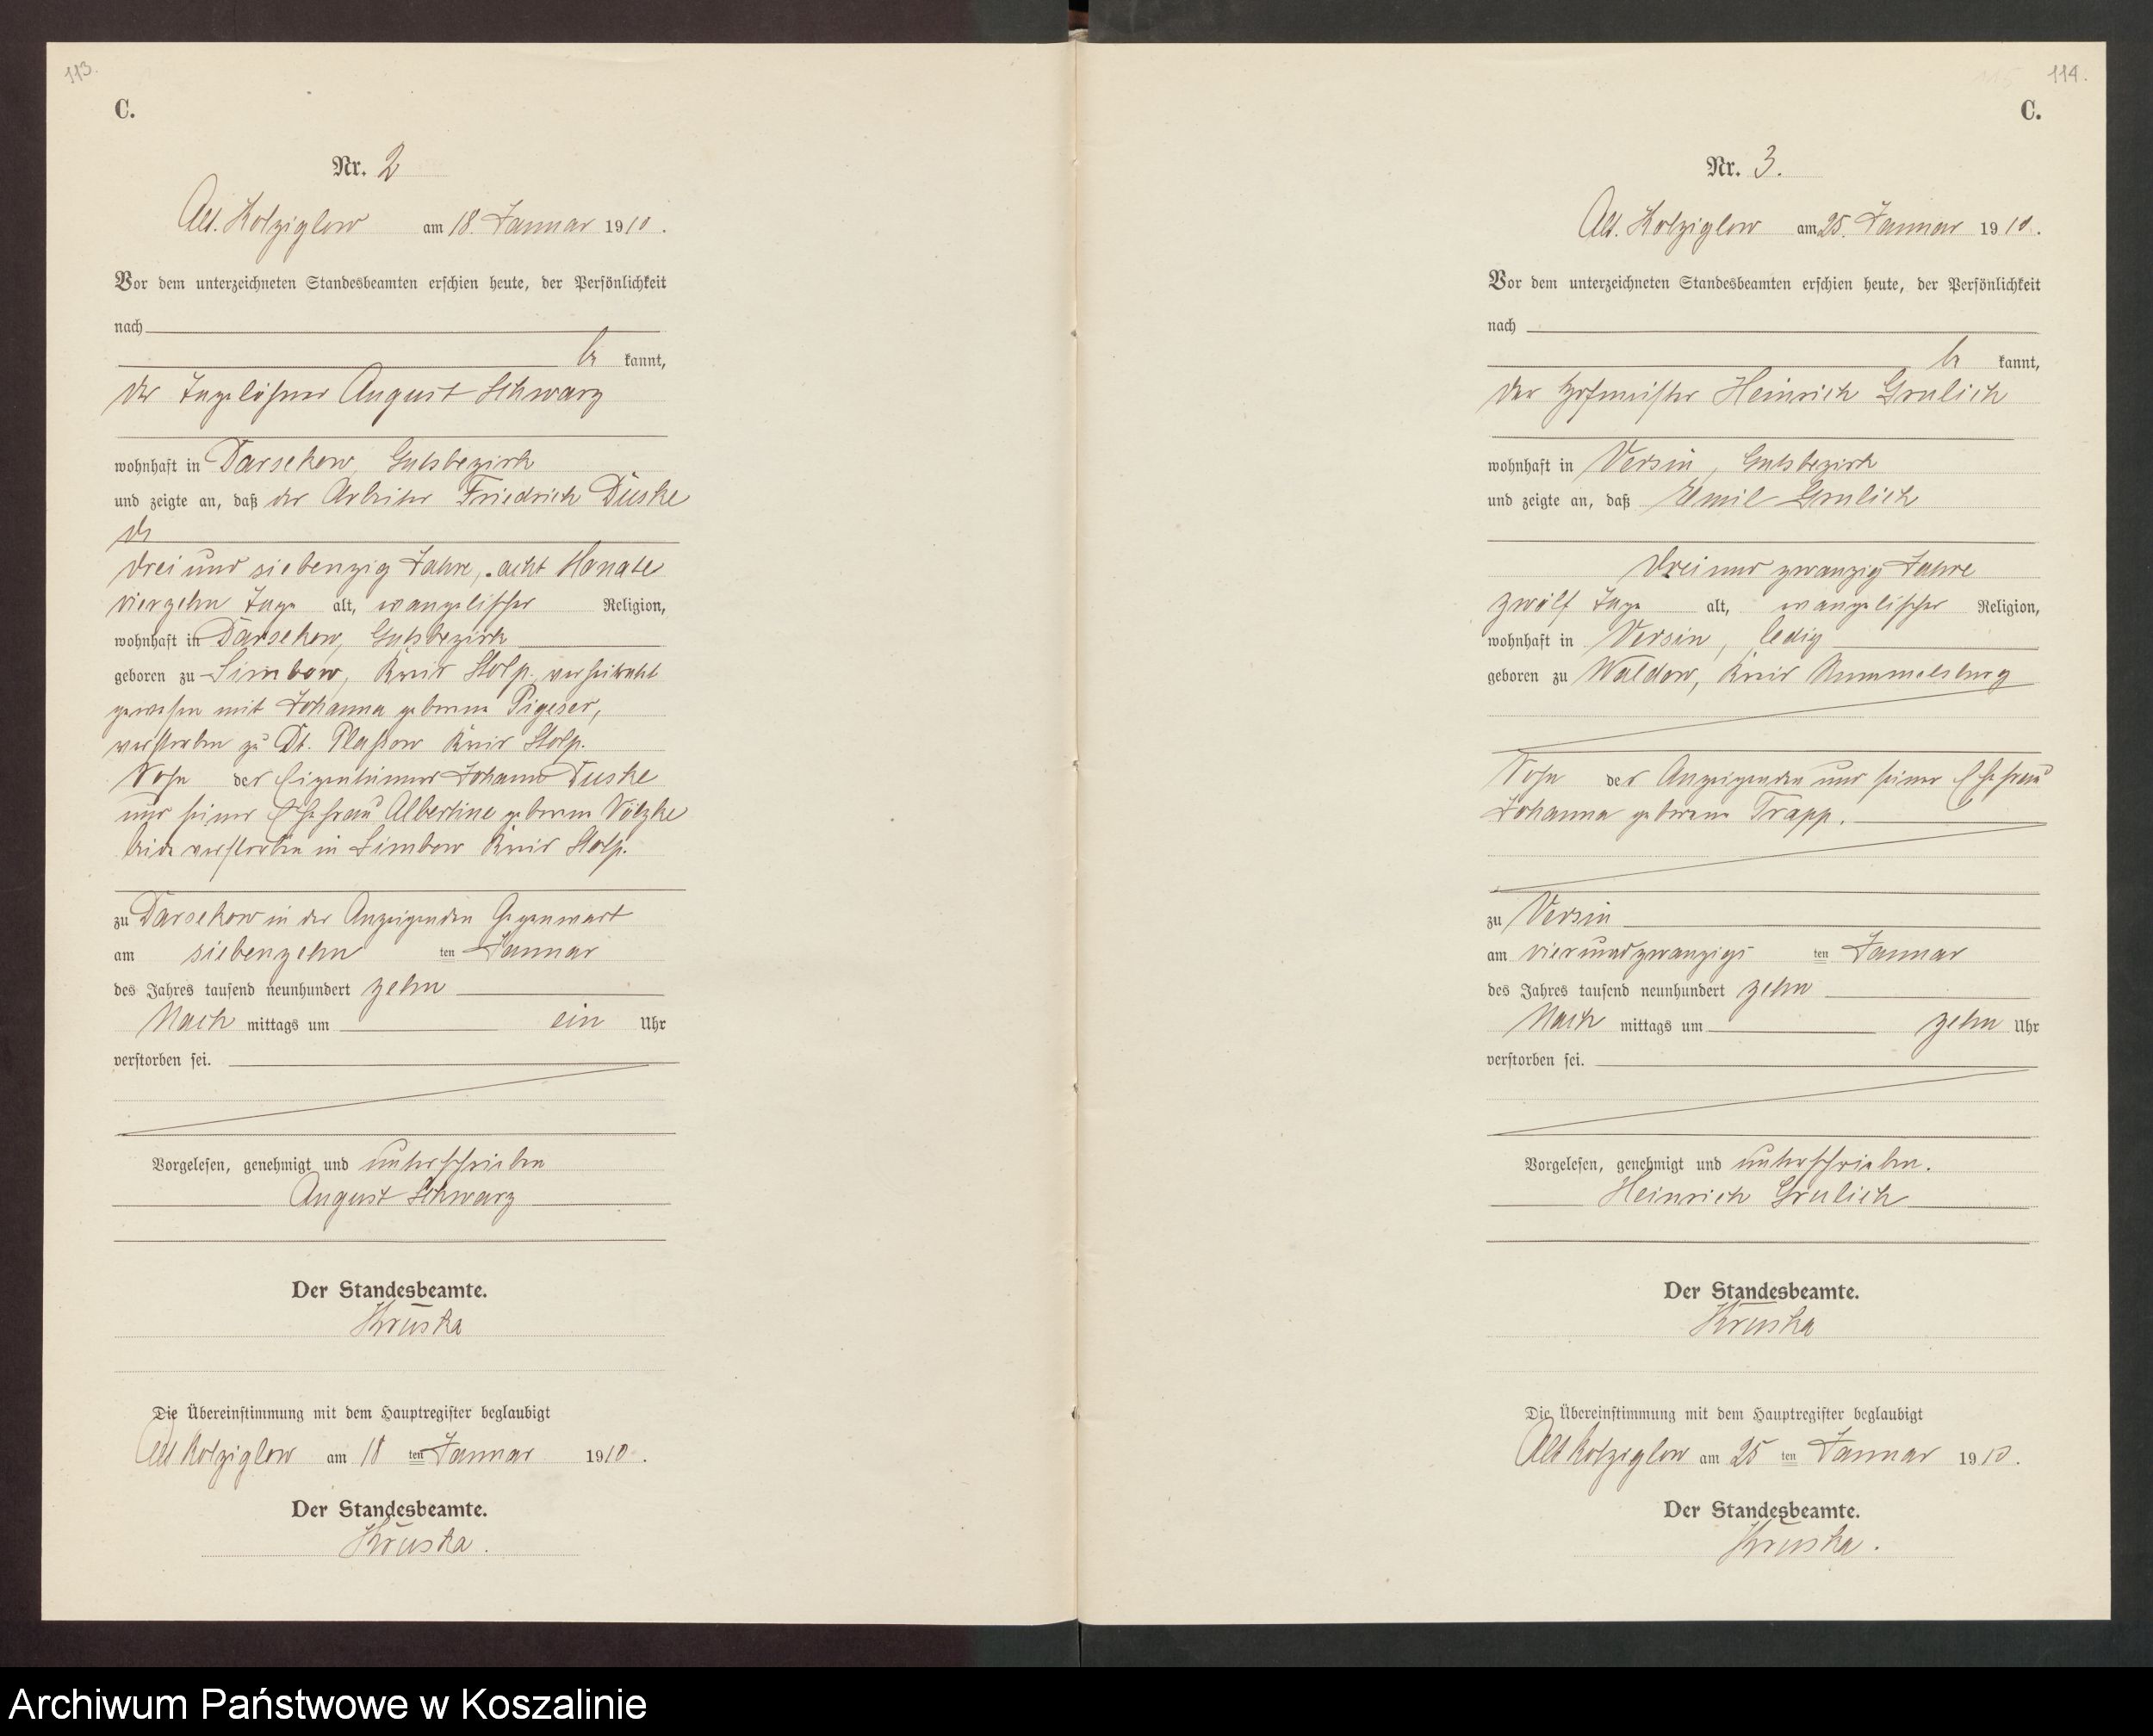 113.
C.
Nr. 2
Alt. Kolziglow am 18. Januar 1910.
Vor dem unterzeichneten Standesbeamten erschien heute, der Persönlichkeit
nach
be kannt,
der Tagelöhner August Schwarz
wohnhaft in Darsekow, Gutsbezirk
und zeigte an, daß der Arbeiter Friedrich Duske
der
drei und siebenzig Jahre, acht Monate
vierzehn Tage alt, evangelischer Religion,
wohnhaft in Darsekow, Gutsbezirk
geboren zu Limbow, Kreis Stolp, verheirathet
gewesen mit Johanna geborene Pigeser,
verstorben zu Dt. Plassow Kreis Stolp.
Sohn des Eigentümer Johann Duske
und seiner Ehefrau Albertine geborene Völzke
beide verstorben in Limbow Kreis Stolp.
zu Darsekow in des Anzeigenden Gegenwart
am siebenzehn ten Januar
des Jahres tausend neunhundert zehn
Nach mittags um ein Uhr
verstorben sei.
Vorgelesen, genehmigt und unterschrieben
August Schwarz
Der Standesbeamte.
Kruska
Die Übereinstimmung mit dem Hauptregister beglaubigt
Alt Kolziglow am 18 ten Januar 1910.
Der Standesbeamte.
Kruska.
114.
C.
Nr. 3.
Alt. Kolziglow am 25. Januar 1910.
Vor dem unterzeichneten Standesbeamten erschien heute, der Persönlichkeit
nach
be kannt,
der Hofmeister Heinrich Grulich
wohnhaft in Versin, Gutsbezirk
und zeigte an, daß Emil Grulich
drei und zwanzig Jahre
zwölf Tage alt, evangelischer Religion,
wohnhaft in Versin, ledig
geboren zu Waldow, Kreis Rummelsburg
Sohn des Anzeigenden und seiner Ehefrau
Johanna geborene Trapp.
zu Versin
am vierundzwanzigs ten Januar
des Jahres tausend neunhundert zehn
Nach mittags um zehn Uhr
verstorben sei.
Vorgelesen, genehmigt und unterschrieben.
Heinrich Grulich
Der Standesbeamte.
Kruska
Die Übereinstimmung mit dem Hauptregister beglaubigt
Alt Kolziglow am 25 ten Januar 1910.
Der Standesbeamte.
Kruska.
Archiwum Państwowe w Koszalinie